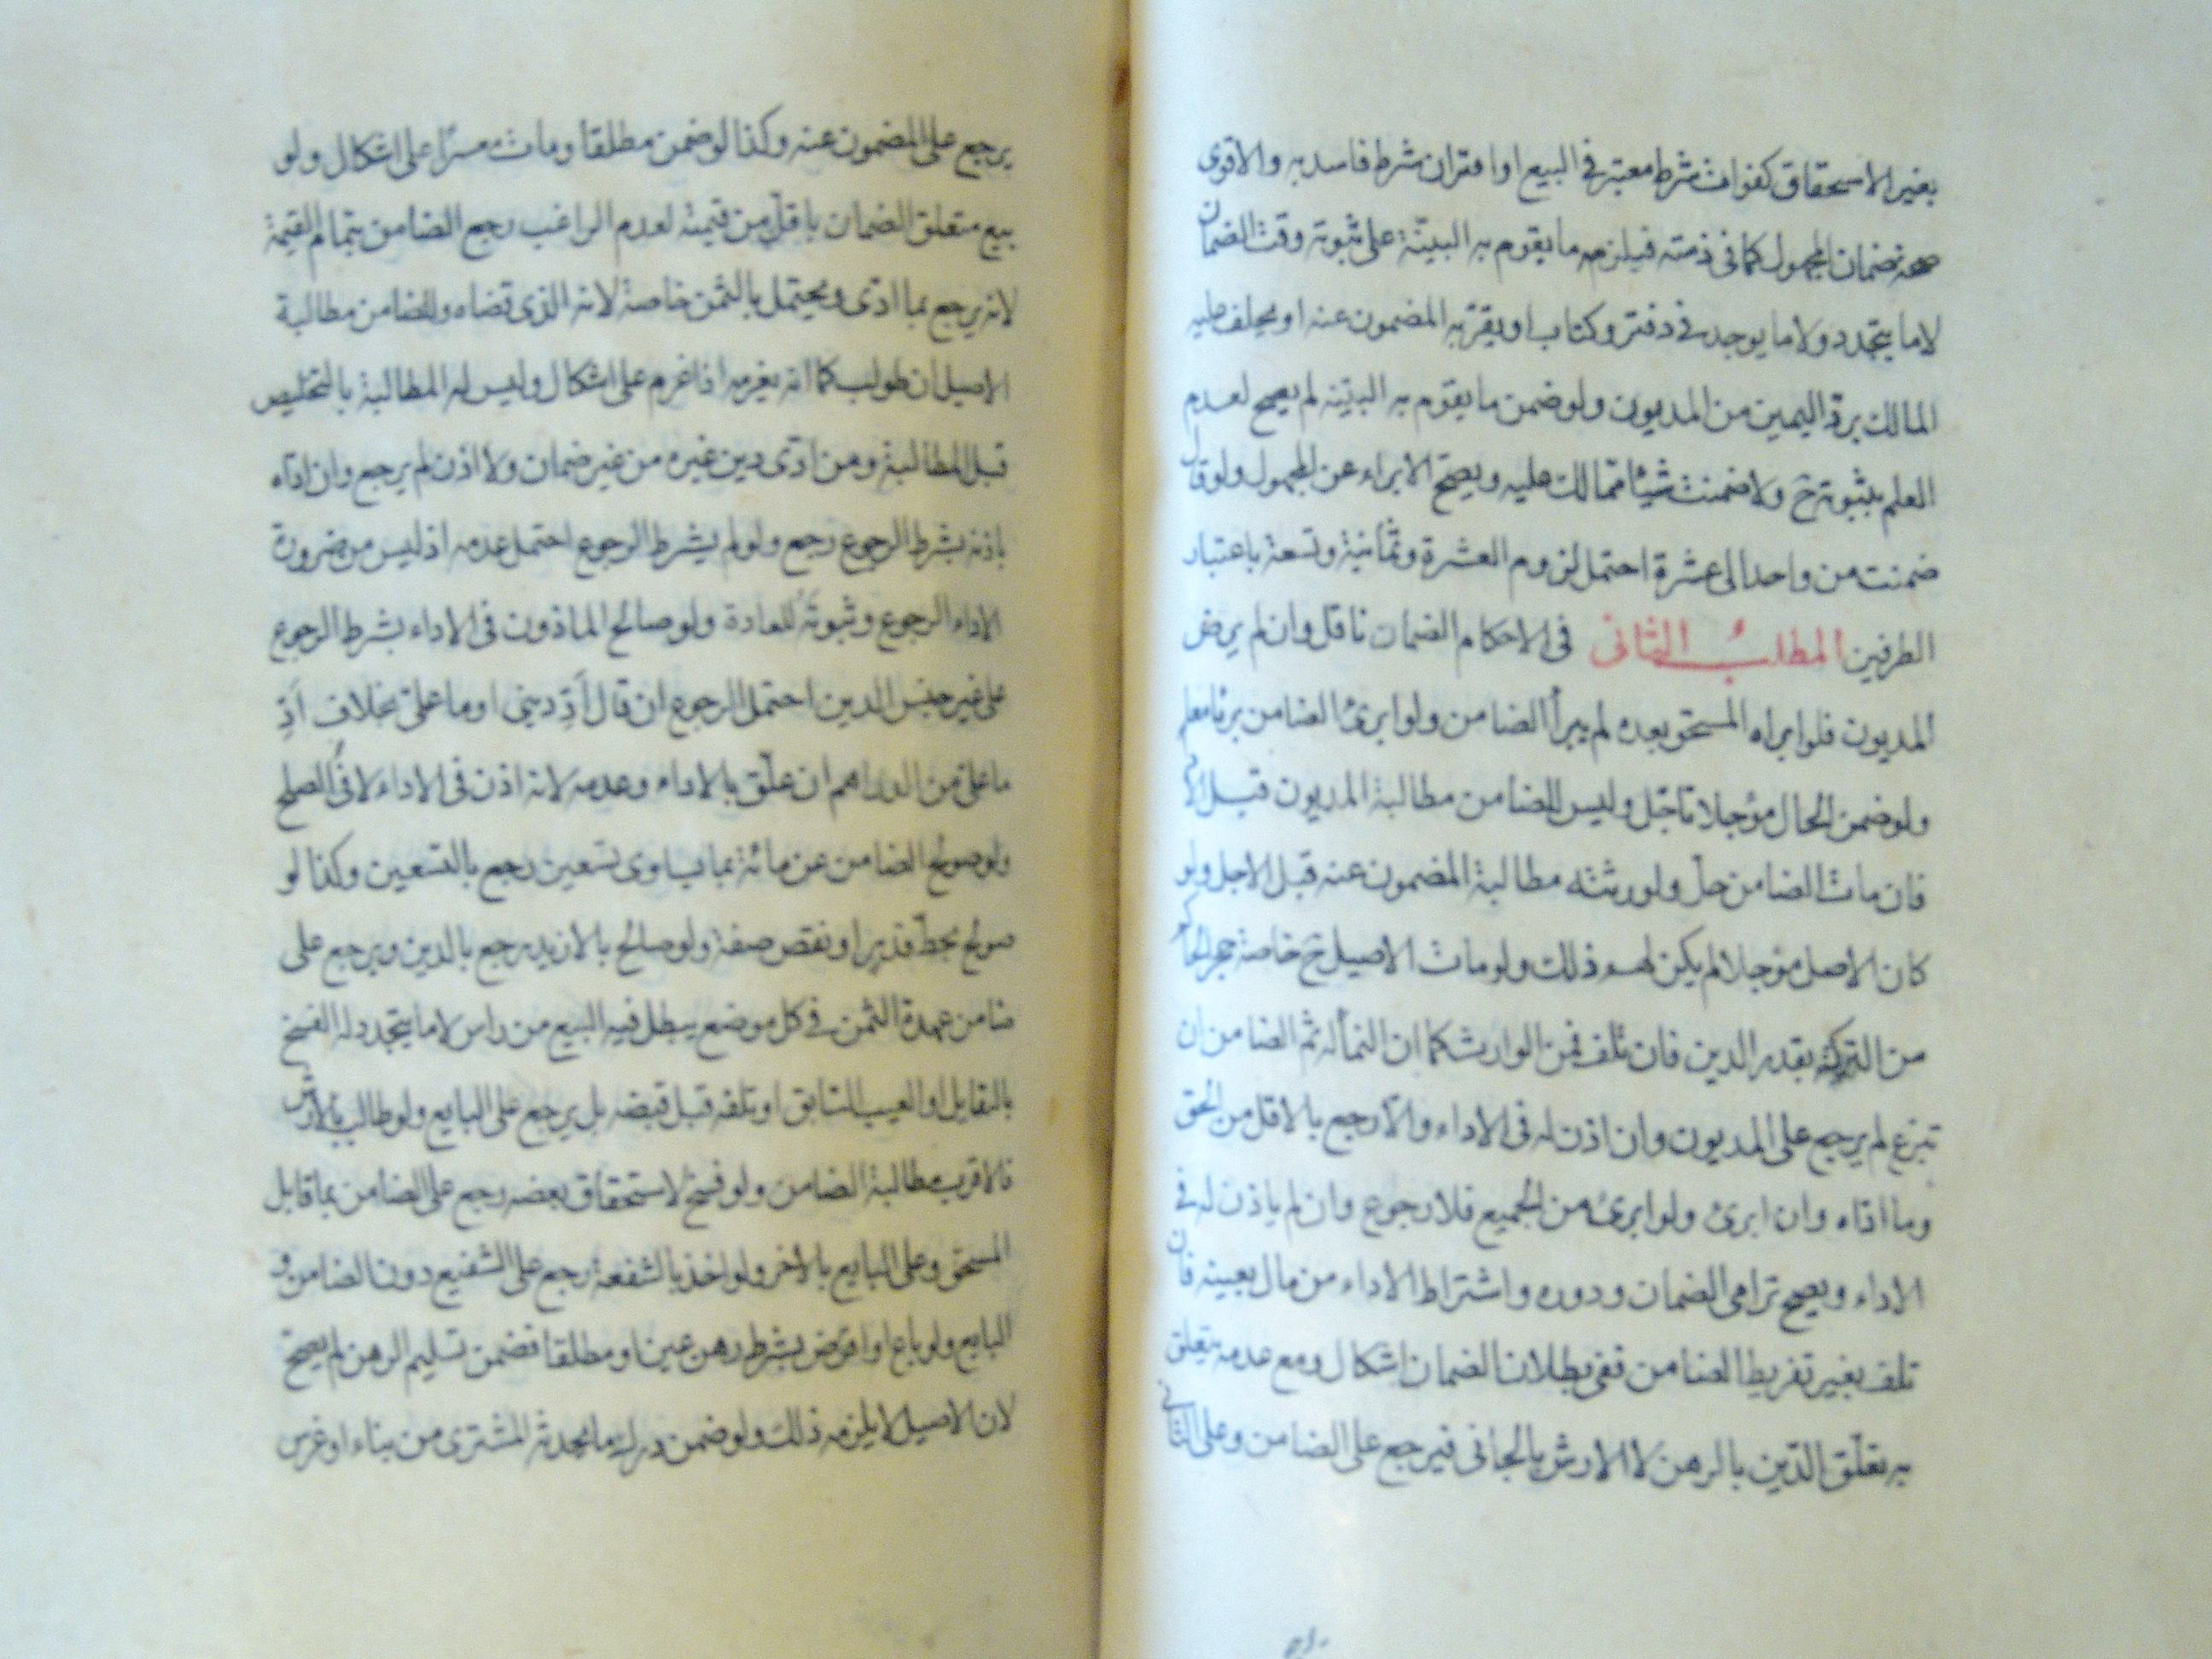 بغير الاستحقاق كفوات شرط معتبر في البيع او اقتران شرط فاسد به والاقوى
صحة ضمان المجهول كما في ذمته فيلزمه ما يقوم به البينة على ثبوته وقت الضمان
لا ما يتجدد ولا ما يوجد في دفتر وكتاب او يقر به المضمون عنه او يحلف عليه
المالك برد اليمين من المديون ولو ضمن ما يقوم به البينه لم يصح لعدم
العلم بثبوته ح ولا ضمنت شيئا مما لك عليه ويصح الابراء عن المجهول ولو قال
ضمنت من واحد الى عشرة احتمل لزوم العشرة وثمانية وتسعة باعتبار
الطرفين المطلب الثاني في الاحكام الضمان ناقل وان لم يرض
المديون فلو ابراه المستحق بعده لم يبرأ الضامن ولو ابرئ الضامن برئا معا
ولو ضمن الحال مؤجلا تاجل وليس للضامن مطالبة المديون قبل الا
فان مات الضامن حل ولورثته مطالبة المضمون عنه قبل الاجل ولو
كان الاصل مؤجلا لم يكن لهم ذلك ولو مات الاصيل ح خاصة حجر الحاكم
من التركة بقدر الدين فان تلف فمن الوارث كما ان النماء له ثم الضامن ان
تبرع لم يرجع على المديون وان اذن له في الاداء والا رجع بالاقل من الحق
وما اداه وان ابرئ ولو ابرئ من الجميع فلا رجوع وان لم ياذن له في
الاداء ويصح ترامى الضمان ودوره واشتراط الاداء من مال بعينه فان
تلف بغير تفريط الضامن ففى بطلان الضمان اشكال ومع عدمه يتعلق
به تعلق الدين بالرهن لا الارش بالجانى فيرجع على الضامن وعلى الثانى
يرجع على المضمون عنه وكذا لو ضمن مطلقا ومات معسرا على اشكال ولو
بيع متعلق الضمان باقل من قيمته لعدم الراغب رجع الضامن بتمام القيمة
لانه يرجع بما ادى ويحتمل بالثمن خاصة لانه الذى قضاه وللضامن مطالبة
الاصيل ان طولب كما انه يغرمه اذا غرم على اشكال وليس له المطالبة بالتخليص
قبل المطالبة ومن ادى دين غيره من غير ضمان ولا اذن لم يرجع وان اداه
باذنه بشرط الرجوع رجع ولو لم يشرط الرجوع احتمل عدمه اذ ليس من ضرورة
الاداء الرجوع وثبوته للعادة ولو صالح الماذون في الاداء بشرط الرجوع
على غير جنس الدين احتمل الرجوع ان قال اد ديني او ما على بخلاف اد
ما على من الدراهم ان علق بالاداء وعدمه لانه اذن في الاداء لا في الصلح
ولو صولح الضامن عن مائة بما يساوى تسعين رجع بالتسعين وكذا لو
صولح بحط قدر او نقص صفة ولو صالح بالازيد رجع بالدين ويرجع على
ضامن عهدة الثمن في كل موضع يبطل فيه البيع من راس لا ما يتجدد له الفسخ
بالتقايل او العيب السابق او تلفه قبل قبضه بل يرجع على البايع ولو طالب بالارش
فالاقرب مطالبة الضامن ولو فسخ لاستحقاق بعضه رجع على الضامن بما قابل
المستحق وعلى البايع بالاخر ولو اخذ بالشفعة رجع على الشفيع دون الضامن و
البايع ولو باع او اقرض بشرط رهن عين او مطلقا فضمن تسليم الرهن لم يصح
لان الاصيل لا يلزمه ذلك ولو ضمن درك ما يحدثه المشترى من بناء او غرس